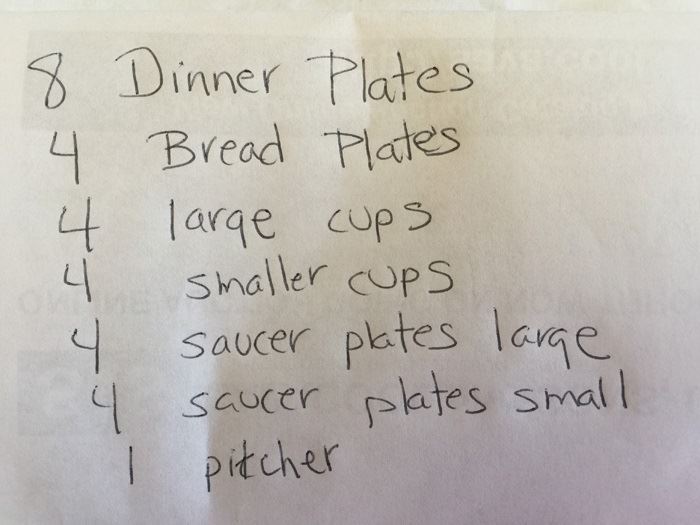 8 Dinner Plates
4 Bread Plates
4 large cups
4 smaller cups
4 saucer plates large
4 saucer plates small
1 pitcher